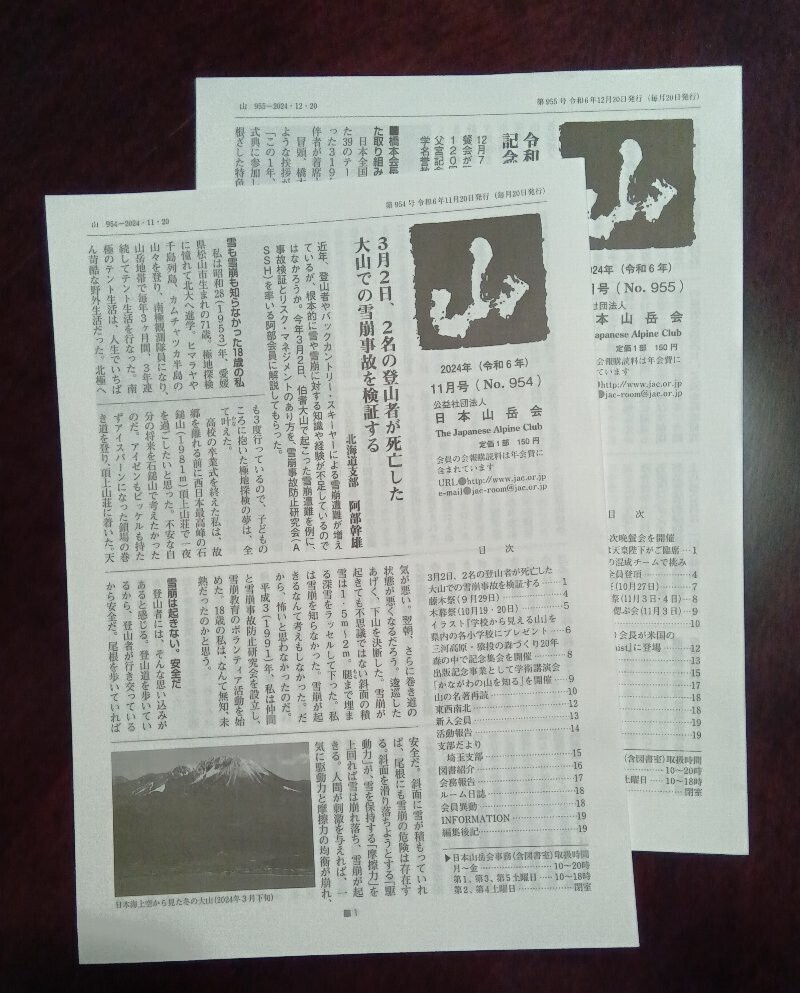 山 955－2024・12・20
第955号 令和6年12月20日発行（毎月20日発行）
山
2024年（令和6年）
月号（No. 955）
日本山岳会
Japanese Alpine Club
定価1部 150円
会報購読料は年会費に
ています
http://www.jac.or.jp
jac-room@jac.or.jp
令和
記念
12月7
餐会が
120
父宮記念
学名誉教
■橋本会長
た取り組み
日本全国
た39のテー
った319年
伴者が着席し
冒頭、橋本
ような挨拶が
「この1年、
式典に参加し
根ざした特色
次晩餐会を開催
は天皇陛下がご臨席…1
の混成チームで挑み
全員登頂…4
（10月27日）…7
祭（11月3日・4日）…8
偲ぶ会（11月3日）…9
10
会長が米国の
ust」に登場…12
13
15
15
17
18
18
19
19
（含図書室）取扱時間
10～20時
土曜日…10～18時
閉室
山 954－2024・11・20
第954号 令和6年11月20日発行（毎月20日発行）
山
2024年（令和6年）
11月号（No. 954）
公益社団法人
日本山岳会
The Japanese Alpine Club
定価1部 150円
会員の会報購読料は年会費に
含まれています
URL●http://www.jac.or.jp
e-mail●jac-room@jac.or.jp
3月2日、2名の登山者が死亡した
大山での雪崩事故を検証する
北海道支部 阿部幹雄
近年、登山者やバックカントリー・スキーヤーによる雪崩遭難が増え
ているが、根本的に雪や雪崩に対する知識や経験が不足しているので
はなかろうか。今年3月2日、伯耆大山で起こった雪崩遭難を例に、
事故検証とリスク・マネジメントのあり方を、雪崩事故防止研究会（A
SSH）を率いる阿部会員に解説してもらった。
雪も雪崩も知らなかった18歳の私
私は昭和28（1953）年、愛媛
県松山市生まれの71歳。極地探検
に憧れて北大へ進学。ヒマラヤや
千島列島、カムチャツカ半島の
山々を登り、南極観測隊員になり、
山岳地帯で毎年3ヶ月間、3年連
続してテント生活を行なった。南
極のテント生活は、人生でいちば
ん苛酷な野外生活だった。北極へ
も3度行っているので、子どもの
ころに抱いた極地探検の夢は、全
て叶えた。
高校の卒業式を終えた私は、故
郷を離れる前に西日本最高峰の石
鎚山（1981m）頂上山荘で一夜
を過ごしたいと思った。不安な自
分の将来を石鎚山で考えたかった
のだ。アイゼンもピッケルも持た
ずアイスバーンになった鎖場の巻
き道を登り、頂上山荘に着いた。天
気が悪い。翌朝、さらに巻き道の
状態が悪くなるだろう。逡巡した
あげく、下山を決断した。雪崩が
起きても不思議ではない斜面の積
雪は1・5m～2m。腿まで埋ま
る深雪をラッセルして下った。私
は雪崩を知らなかった。雪崩が起
きるなんて考えもしなかった。だ
から、怖いと思わなかったのだ。
平成3（1991）年、私は仲間
と雪崩事故防止研究会を設立し、
雪崩教育のボランティア活動を始
めた。18歳の私は、なんて無知、未
熟だったのかと思う。
雪崩は起きない。安全だ
登山者には、そんな思い込みが
あると感じる。登山道を歩いてい
るから、登山者が行き交っている
から安全だ。尾根を歩いていれば
安全だ。斜面に雪が積もっていれ
ば、尾根にも雪崩の危険は存在す
る。斜面を滑り落ちようとする「駆
動力」が、雪を保持する「摩擦力」を
上回れば雪は崩れ落ち、雪崩が起
きる。人間が刺激を与えれば、一
気に駆動力と摩擦力の均衡が崩れ、
日本海上空から見た冬の大山（2024年3月下旬）
目 次
3月2日、2名の登山者が死亡した
大山での雪崩事故を検証する…1
藤木祭（9月29日）…4
木暮祭（10月19・20日）…5
イラスト『学校から見える山』を
県内の各小学校にプレゼント…6
三河高原・猿投の森づくり20年
森の中で記念集会を開催…8
出版記念事業として学術講演会
「かながわの山を知る」を開催…9
山の名著再読…10
東西南北…12
新入会員…13
活動報告…14
支部だより
埼玉支部…15
図書紹介…16
会務報告…17
ルーム日誌…18
会員異動…18
INFORMATION…19
編集後記…19
▶日本山岳会事務（含図書室）取扱時間
月～金…10～20時
第1、第3、第5土曜日…10～18時
第2、第4土曜日…閉室
■1